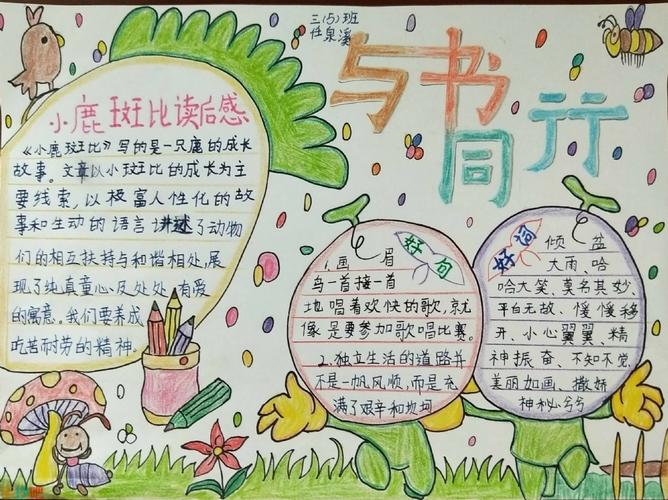 三(5)班
任泉溪
与书同行
小鹿斑比读后感
《小鹿斑比》写的是一只鹿的成长
故事。文章以小斑比的成长为主
要线索,以极富人性化的故
事和生动的语言讲述了动物
们的相互扶持与和谐相处,展
现了纯真童心、反处处、有爱
的寓意。我们要养成
吃苦耐劳的精神。
好句
1.画眉
鸟一首接一首
地唱着欢快的歌,就
像是要参加歌唱比赛。
2.独立生活的道路并
不是一帆风顺,而是充
满了艰辛和坎坷
好词
倾盆
大雨、哈
哈大笑、莫名其妙
平白无故、慢慢移
开、小心翼翼、精
神振奋、不知不觉
美丽如画、撒娇
神秘兮兮